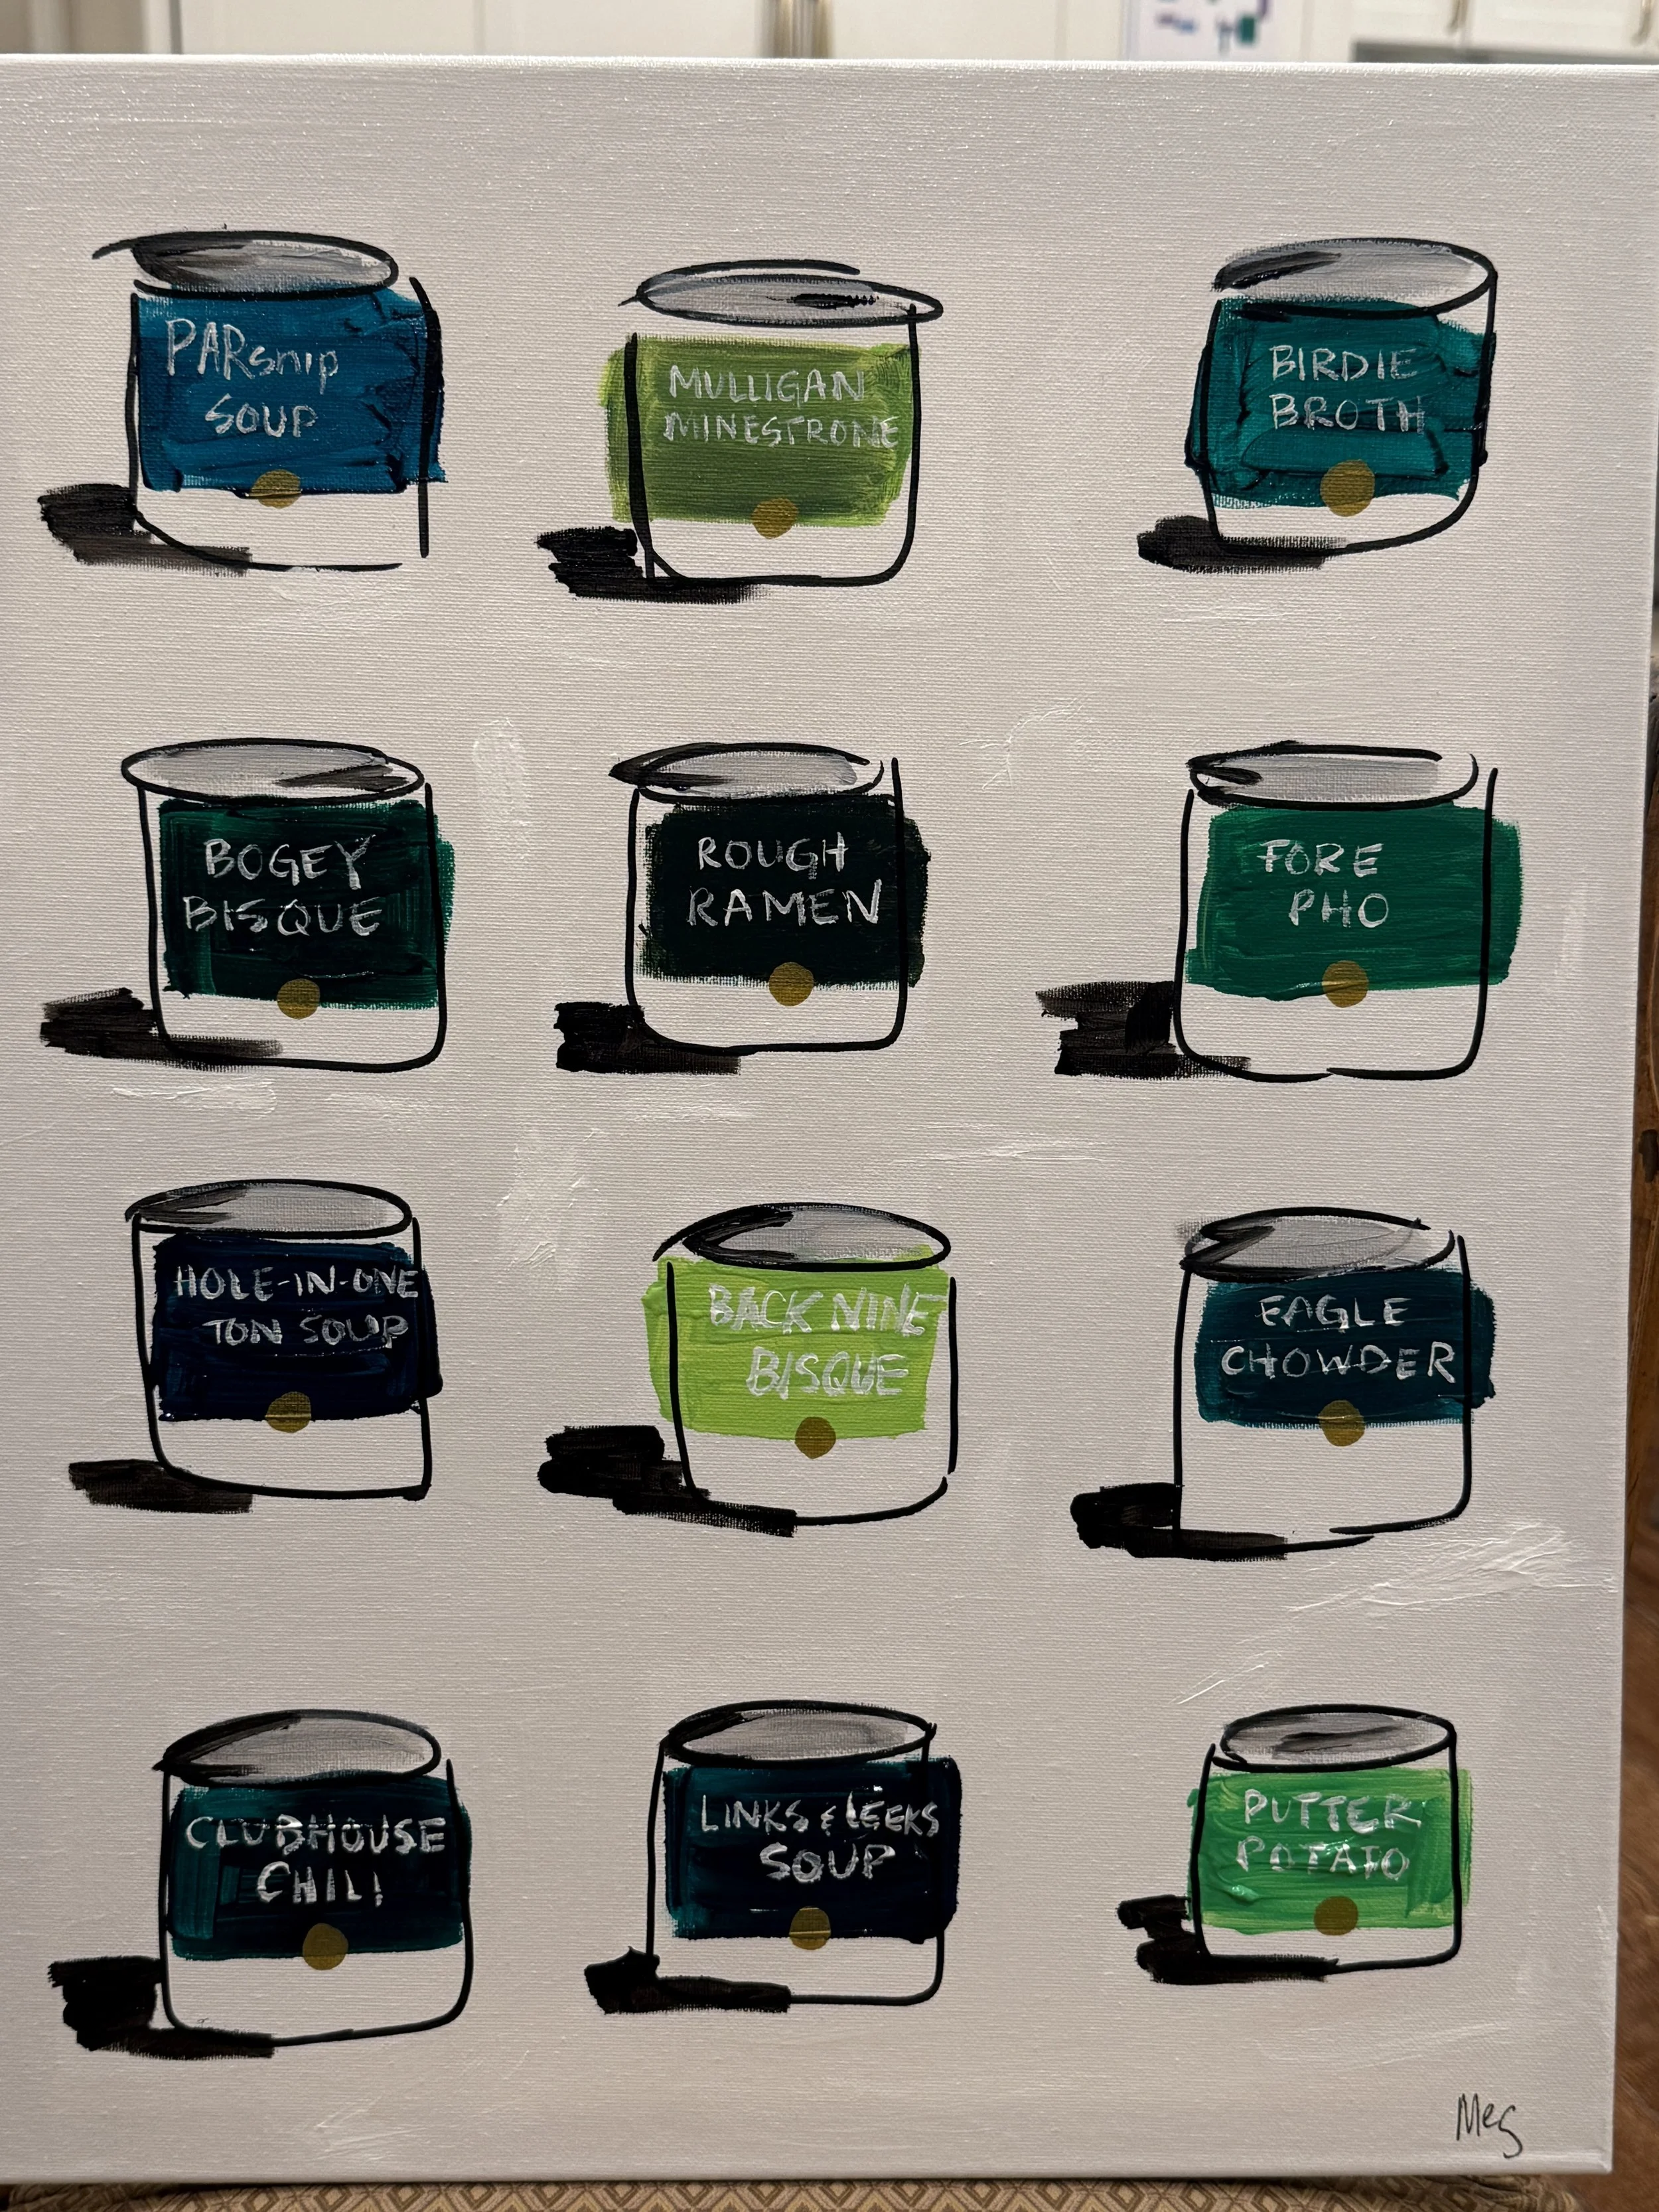 PARsnip
SOUP
MULLIGAN
MINESTRONE
BIRDIE
BROTH
BOGEY
BISQUE
ROUGH
RAMEN
FORE
PHO
HOLE-IN-ONE
TON SOUP
BACK NINE
BISQUE
EAGLE
CHOWDER
CLUBHOUSE
CHILI
LINKS & LEEKS
SOUP
PUTTER
POTATO
Meg